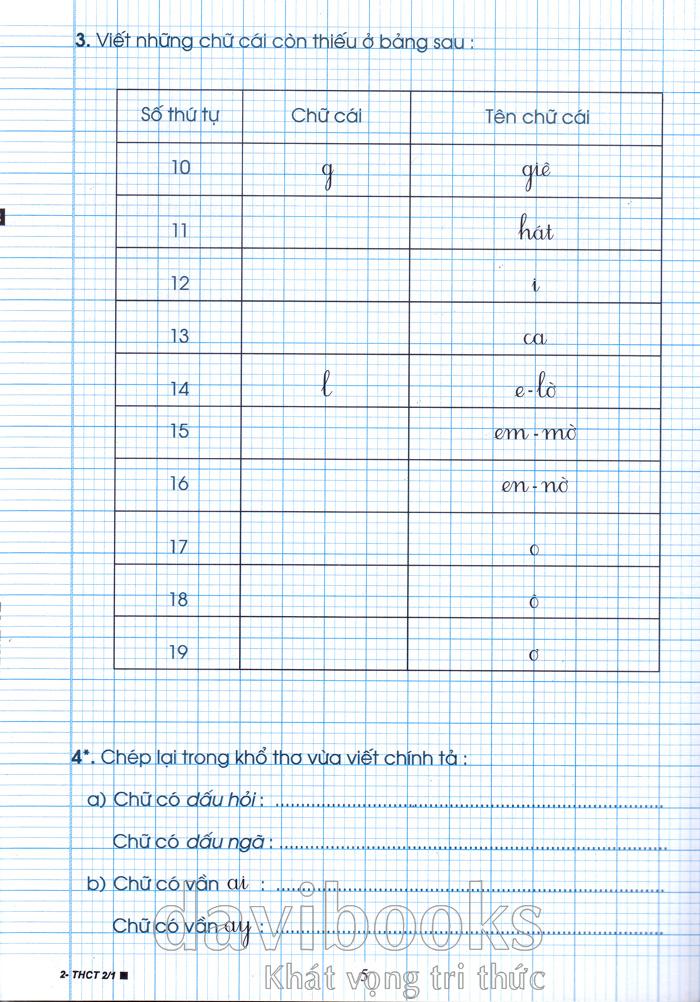 3. Viết những chữ cái còn thiếu ở bảng sau :
Số thứ tự Chữ cái Tên chữ cái
10 g giê
11 hát
12 i
13 ca
14 l e-lờ
15 em-mờ
16 en-nờ
17 o
18 ô
19 ơ
4*. Chép lại trong khổ thơ vừa viết chính tả :
a) Chữ có dấu hỏi : ........................................
Chữ có dấu ngã : ........................................
b) Chữ có vần ai : ........................................
Chữ có vần ay : ........................................
davibooks
Khát vọng tri thức
2- THCT 2/1
5